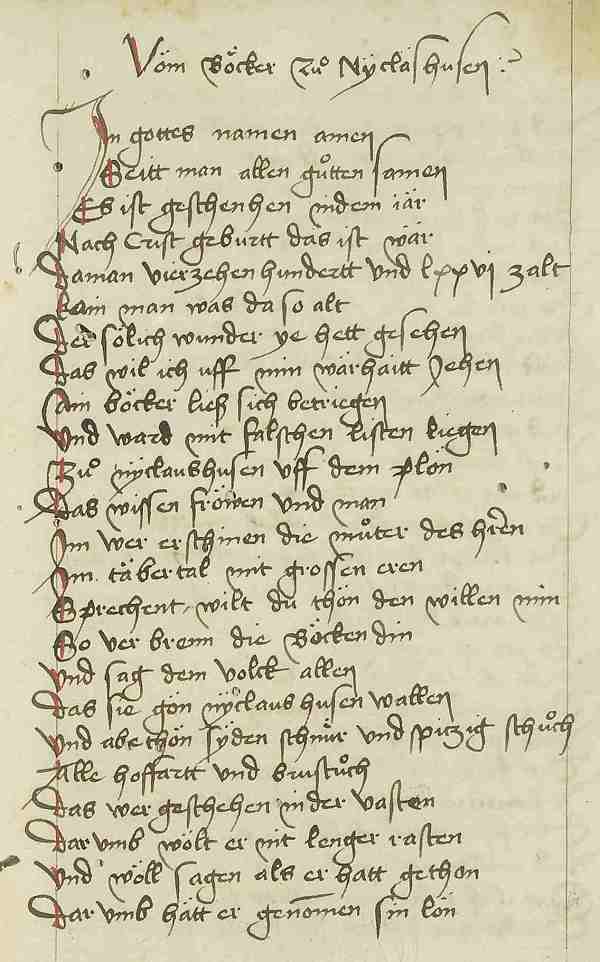 Vöm Böcker zuͦ Nÿclashusen
In gottes namen amen
Seitt man allen guͦtten samen
Es ist geschenhen indem iär
Nach Crist geburtt das ist wär
Da man vierzehen hundertt und lxxvi zalt
kain man was da so alt
Der sölich wunder ye hett gesehen
Das wil ich uff min wärhaitt Jehen
Ain böcker ließ sich betriegen
Und ward mit falschen listen liegen
Zuͦ nÿclaushusen uff dem plön
Das wissen fröwen und man
Im wer erschinen die muͦter des hr̄en
Im täbertal mit grossen eren
Sprechent wilt du thön den willen min
So ver brenn die Böcken din
Und sag dem volck allen
Das sie gön nÿclaus husen wallen
Und abethön sÿden schnuͤr und spiczig schuͦch
Alle hoffartt und brustuͦch
Das wer geschehen in der vasten
Dar umb wölt er nit lenger rasten
Und wöll sagen als er hatt gethon
Dar umb hätt er genom̄en sin lön